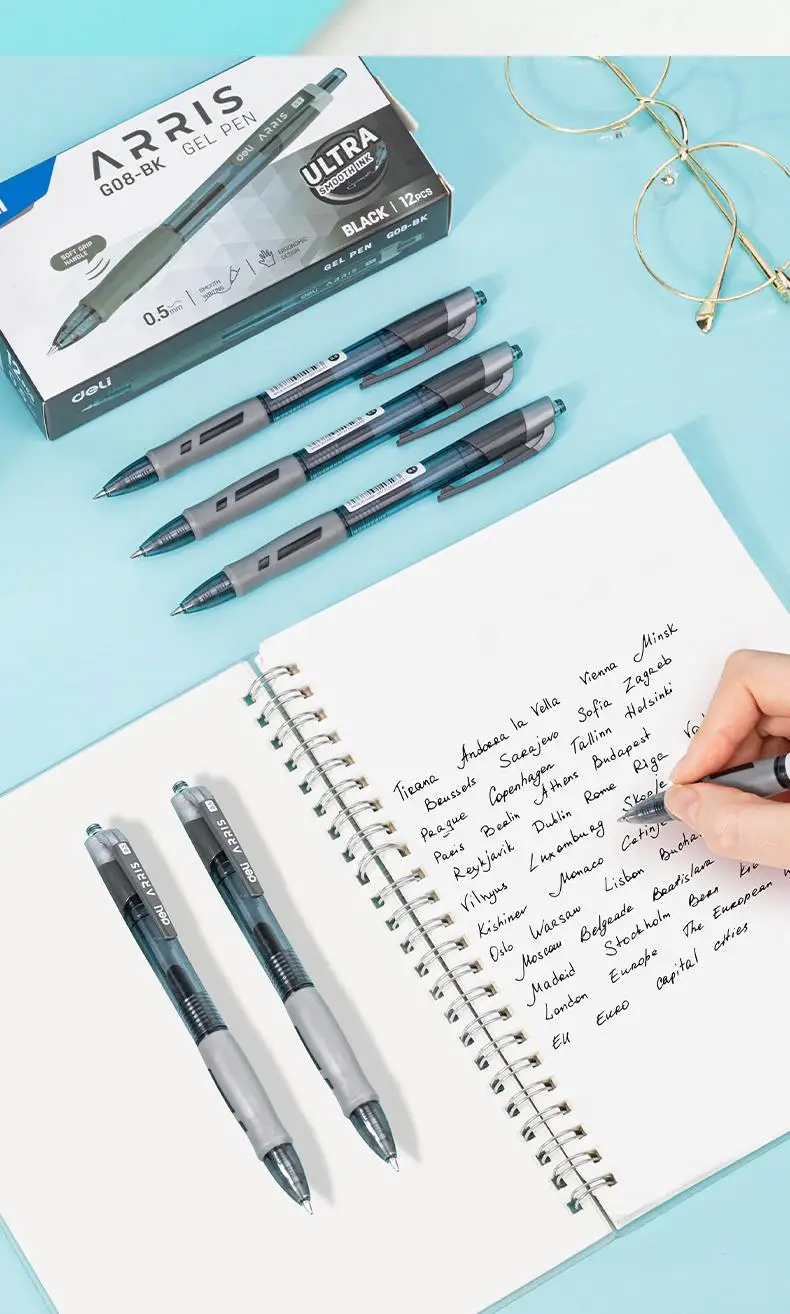 ARRIS
G08-BK GEL PEN
deli ARRIS
ULTRA
SMOOTH INK
BLACK | 12PCS
SOFT GRIP
HANDLE
0.5mm
SMOOTH
WRITING
ERGONOMIC
DESIGN
GEL PEN G08-BK
deli
deli ARRIS
deli ARRIS
Tirana Andorra la Vella Vienna Minsk
Brussels Sarajevo Sofia Zagreb
Prague Copenhagen Tallinn Helsinki
Paris Berlin Athens Budapest
Reykjavik Dublin Rome Riga
Vilnyus Luxemburg Skople
Kishinev Monaco Cetinje
Oslo Warsaw Lisbon
Moscow Belgrade Bratislava
Madrid Stockholm Bern
London Europe The European
EU EURO capital cities